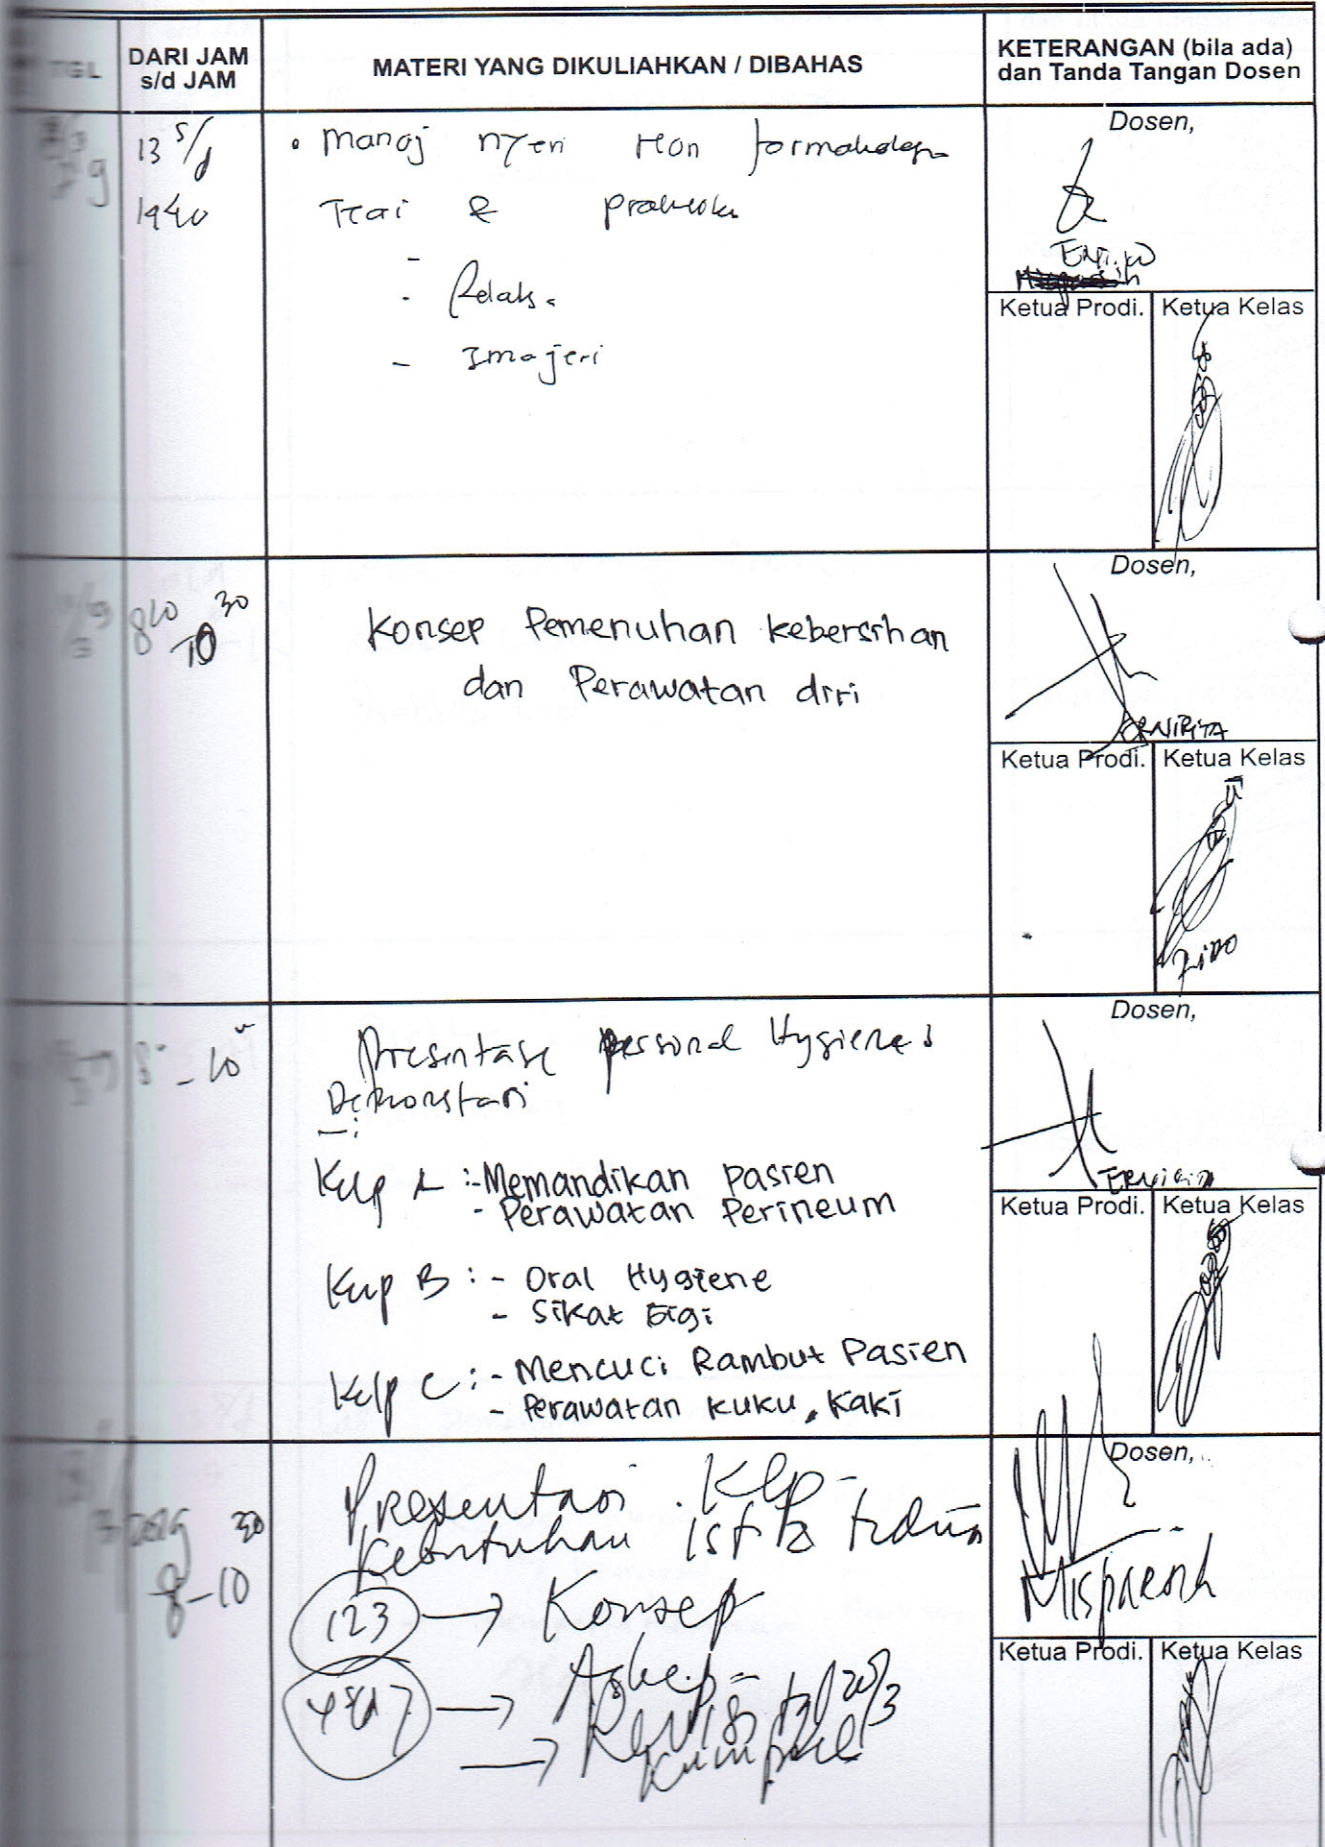 TGL
DARI JAM
s/d JAM
MATERI YANG DIKULIAHKAN / DIBAHAS
KETERANGAN (bila ada)
dan Tanda Tangan Dosen
13 s/d
1440
• Manaj nyeri Non
Teori &
- Relaks
- Imajeri
Dosen,
Ketua Prodi.
Ketua Kelas
8
10 30
Konsep Pemenuhan kebersihan
dan Perawatan diri
Dosen,
ERNIRITA
Ketua Prodi.
Ketua Kelas
8 - 10
Presentase personal Hygiene
Demonstrasi
Klp A :- Memandikan pasien
- Perawatan Perineum
Klp B : - Oral Hygiene
- Sikat Gigi
Klp C : - Mencuci Rambut Pasien
- Perawatan kuku, kaki
Dosen,
Ketua Prodi.
Ketua Kelas
2019
8 - 10 30
Presentasi Klp
Kebutuhan Ist & tidur
123 → Konsep
→ Askep
→ Revisi tgl 20/3
Dosen,
Ketua Prodi.
Ketua Kelas